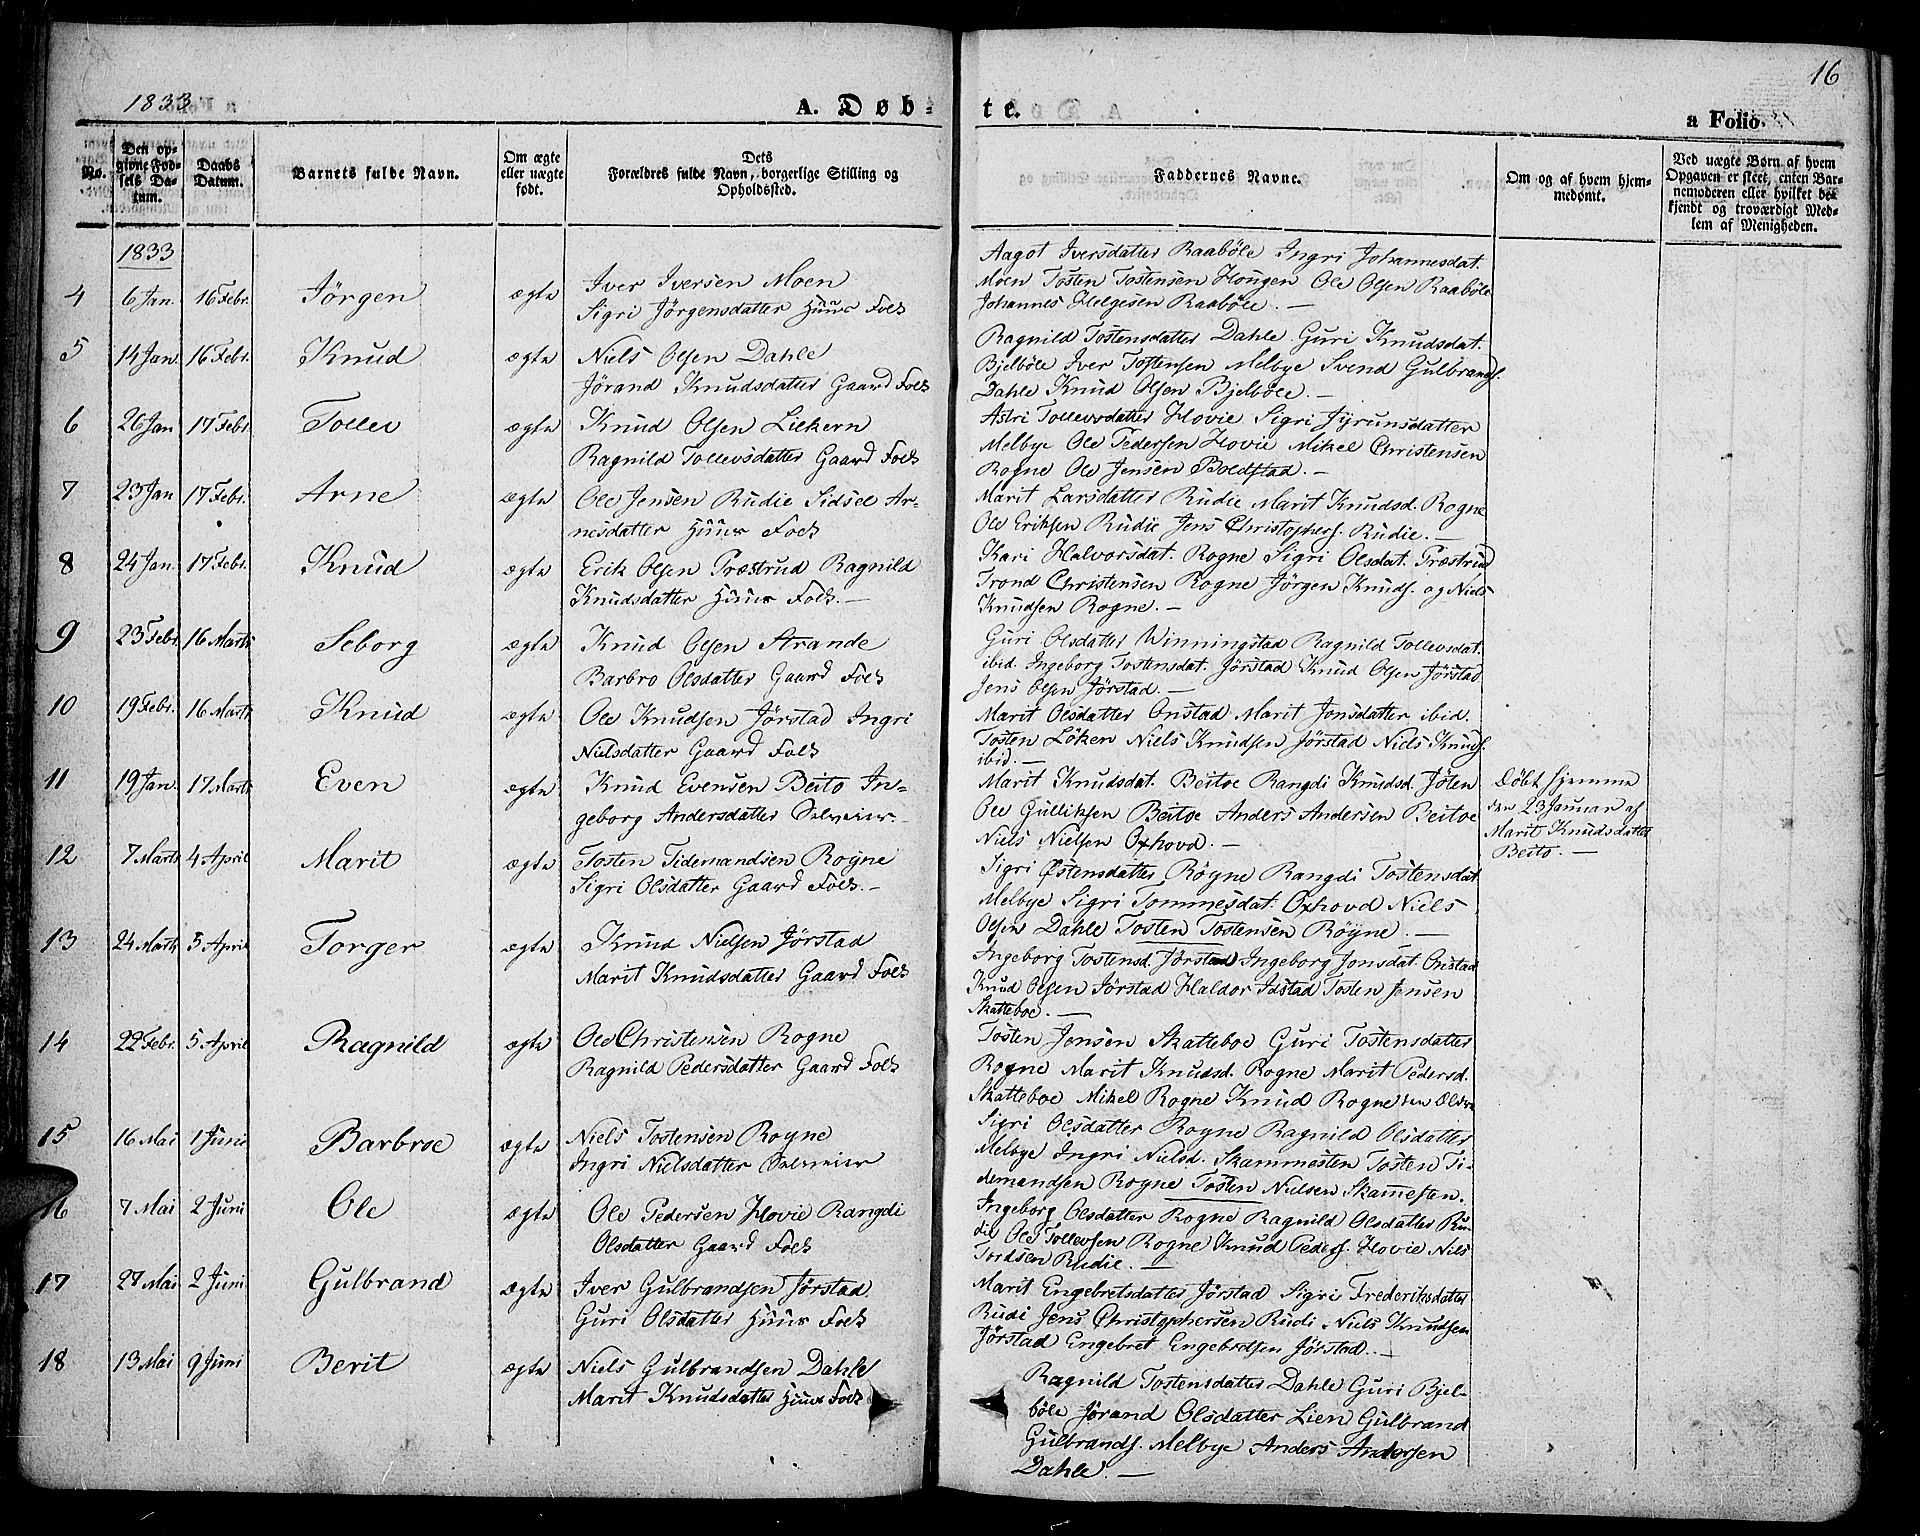 1833
A. Døb=
te.
a Folio.
16
No.
Den op=
givne Fød=
sels Da=
tum.
Daabs
Datum.
Barnets fulde Navn.
Om ægte
eller uægte
født.
Dets
Forældres fulde Navn, borgerlige Stilling og
Opholdssted.
Faddernes Navne.
Om og af hvem hjem=
medømt.
Ved uægte Børn af hvem
Opgaven er skeet, enten Bar=
nemoderen eller hvilket be=
kjendt og troværdigt Med=
lem af Menigheden.
1833
4 6 Jan. 16 Febr. Jörgen ægte
Iver Iversen Moen
Sigri Jörgensdatter Huus Folk
Aagot Iversdatter Raaböle Ingri Johannesdat.
Moen Tosten Tostensen Hougen Ole Olsen Raaböle
Johannes Helgesen Raaböle. —
5 14 Jan. 16 Febr. Knud ægte
Niels Olsen Dahle
Jörand Knudsdatter Gaard Folk
Ragnild Tostensdatter Dahle Guri Knudsdat.
Bjelböle Iver Tostensen Melbye Svend Gulbrands.
Dahle Knud Olsen Bjelböle. —
6 26 Jan 17 Febr. Tollev ægte
Knud Olsen Liekern
Ragnild Tollevsdatter Gaard Folk
Astri Tollevsdatter Hovie Sigri Jyrunsdatter
Melbye Ole Pedersen Hovie Mikel Christensen
Rogne Ole Jensen Boldstad. —
7 23 Jan 17 Febr. Arne ægte
Ole Jensen Rudie Sidsel Ar-
nesdatter Huus Folk
Marit Larsdatter Rudie Marit Knudsd. Rogne
Ole Eriksen Rudie Jens Christophers. Rudie. —
8 24 Jan. 17 Febr. Knud ægte
Erik Olsen Præstrud Ragnild
Knudsdatter Huus Folk. —
Kari Halvorsdat. Rogne Sigri Olsdat. Præstrud
Trond Christensen Rogne Jörgen Knuds. og Niels
Knudsen Rogne. —
9 23 Febr. 16 Marts Seborg ægte
Knud Olsen Strande
Barbro Olsdatter Gaard Folk
Guri Olsdatter Winningstad Ragnild Tollevsdat.
ibid. Ingeborg Tostensdat. Jörstad Knud Olsen Jörstad
Jens Olsen Jörstad. —
10 19 Febr. 16 Marts Knud ægte
Ole Knudsen Jörstad Ingri
Nielsdatter Gaard Folk
Marit Olsdatter Onstad Marit Jonsdatter ibid.
Tosten Löken Niels Knudsen Jörstad Niels Knuds.
ibid. —
11 19 Jan. 17 Marts Even ægte
Knud Evensen Beito In-
geborg Andersdatter
Marit Knudsdat. Beitoe Rangdi Knudsd. Jöten
Ole Gulliksen Beitoe Anders Andersen Beitoe
Niels Nielsen Oxhovd. —
Döbt hjemme
den 23 Januar af
Marit Knudsdatter
Beito. —
12 7 Marts 4 April Marit ægte
Tosten Tidemandsen Rogne
Sigri Olsdatter Gaard Folk. —
Sigri Østensdatter Rögne Rangdi Tostensdat.
Melbye Sigri Tommesdat. Oxhovd Niels
Olsen Dahle Tosten Tostensen Rögne. —
13 24 Marts 5 April Torger ægte
Knud Nielsen Jörstad
Marit Knudsdatter Gaard Folk
Ingeborg Tostensd. Jörstad Ingeborg Jonsdat. Onstad
Knud Olsen Jörstad Haldor Idstad Tosten Jensen
Skatteboe. —
14 22 Febr. 5 April Ragnild ægte
Ole Christensen Rogne
Ragnild Pedersdatter Gaard Folk
Tosten Jensen Skatteboe Guri Tostensdatter
Rogne Marit Knudsd. Rogne Marit Pedersd.
Skatteboe Mikel Rogne Knud Rogne den Ældre
15 16 Mai 1 Juni Barbroe ægte
Niels Tostensen Rogne
Ingri Nielsdatter
Sigri Olsdatter Rogne Ragnild Olsdatter
Melbye Ingri Nielsd. Skammesten Tosten Ti-
demandsen Rogne Tosten Nielsen Skamesten.
16 7 Mai 2 Juni Ole ægte
Ole Pedersen Hovie Rangdi
Olsdatter Gaard Folk
Ingeborg Olsdatter Rogne Ragnild Olsdatter Ru-
die Ole Tollevsen Rogne Knud Peders. Hovie Niels
Tordsen Rudie. —
17 27 Mai 2 Juni Gulbrand ægte
Iver Gulbrandsen Jörstad
Guri Olsdatter Huus Folk
Marit Engebretsdatter Jörstad Sigri Frederiksdatter
Rudi Jens Christophersen Rudi Niels Knudsen
Jörstad Engebret Engebretsen Jörstad. —
18 13 Mai 9 Juni Berit ægte
Niels Gulbrandsen Dahle
Marit Knudsdatter Huus Folk
Ragnild Tostensdatter Dahle Guri Bjel-
böle Jörand Olsdatter Lien Gulbrand
Gulbrands. Melbye Anders Andersen
Dahle. —